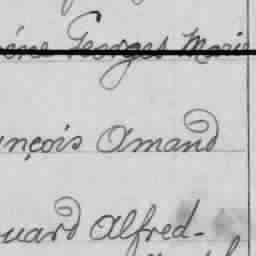 éne Georges Marie
ançois Amand
ouard Alfred-